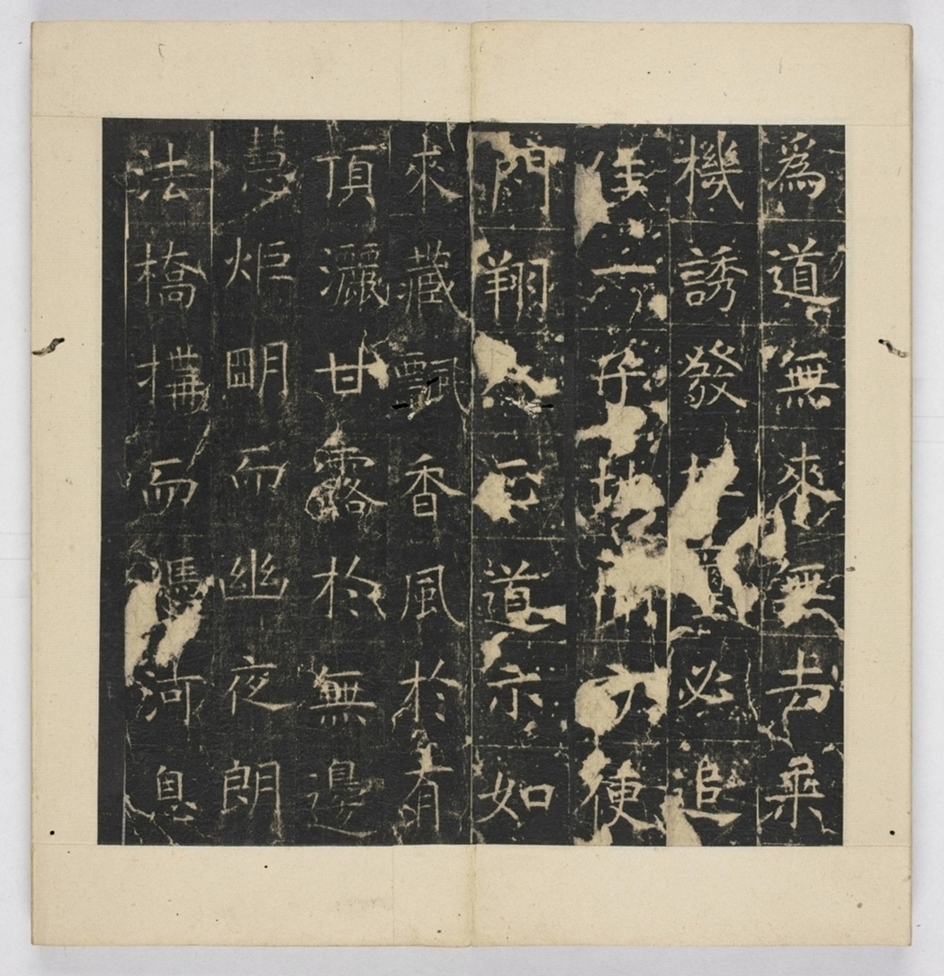 為道無來無去乗
機誘發必追
地使
門翔道亦如
來藏飄香風於有
頂灑甘露於無邊
慧炬眀而幽夜朗
法橋搆而憑河息